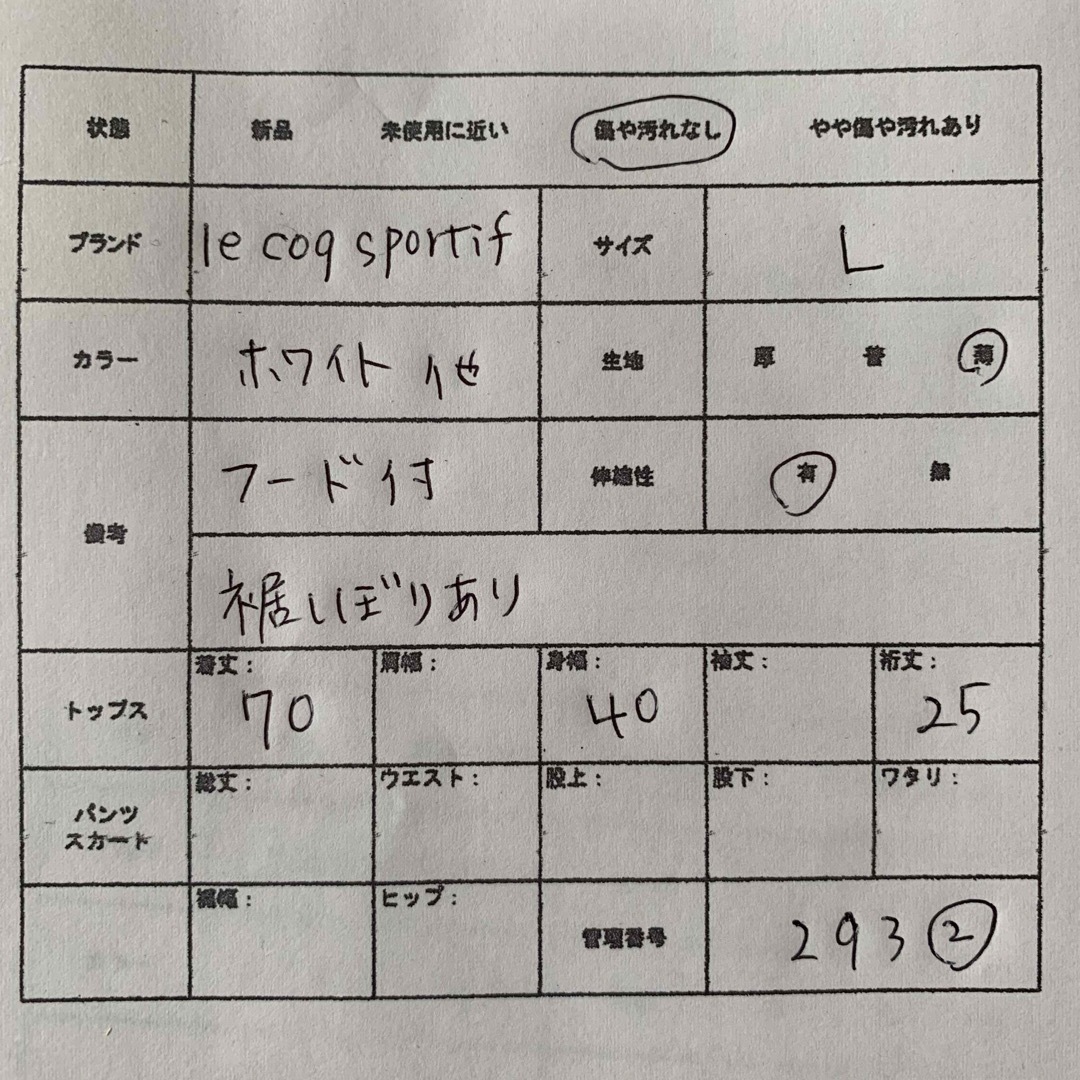 状態 新品 未使用に近い 傷や汚れなし やや傷や汚れあり
ブランド le coq sportif サイズ L
カラー ホワイト 他 生地 厚 普 薄
備考 フード付 伸縮性 有 無
裾しぼりあり
トップス 着丈: 70 肩幅: 身幅: 40 袖丈: 裄丈: 25
パンツ スカート 総丈: ウエスト: 股上: 股下: ワタリ:
裾幅: ヒップ: 管理番号 293②